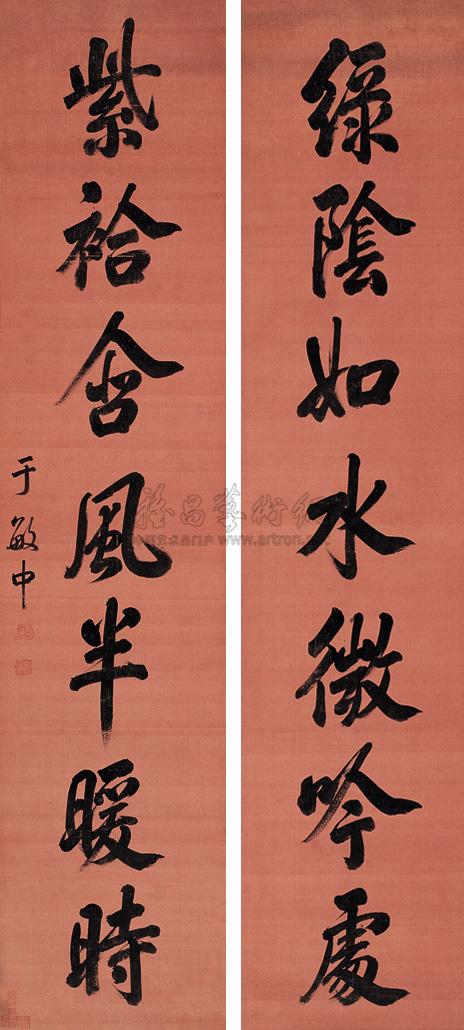 綠陰如水微吟處
紫袷含風半暖時
于敏中
雅昌藝術網
中国艺术品门户 www.artron.net